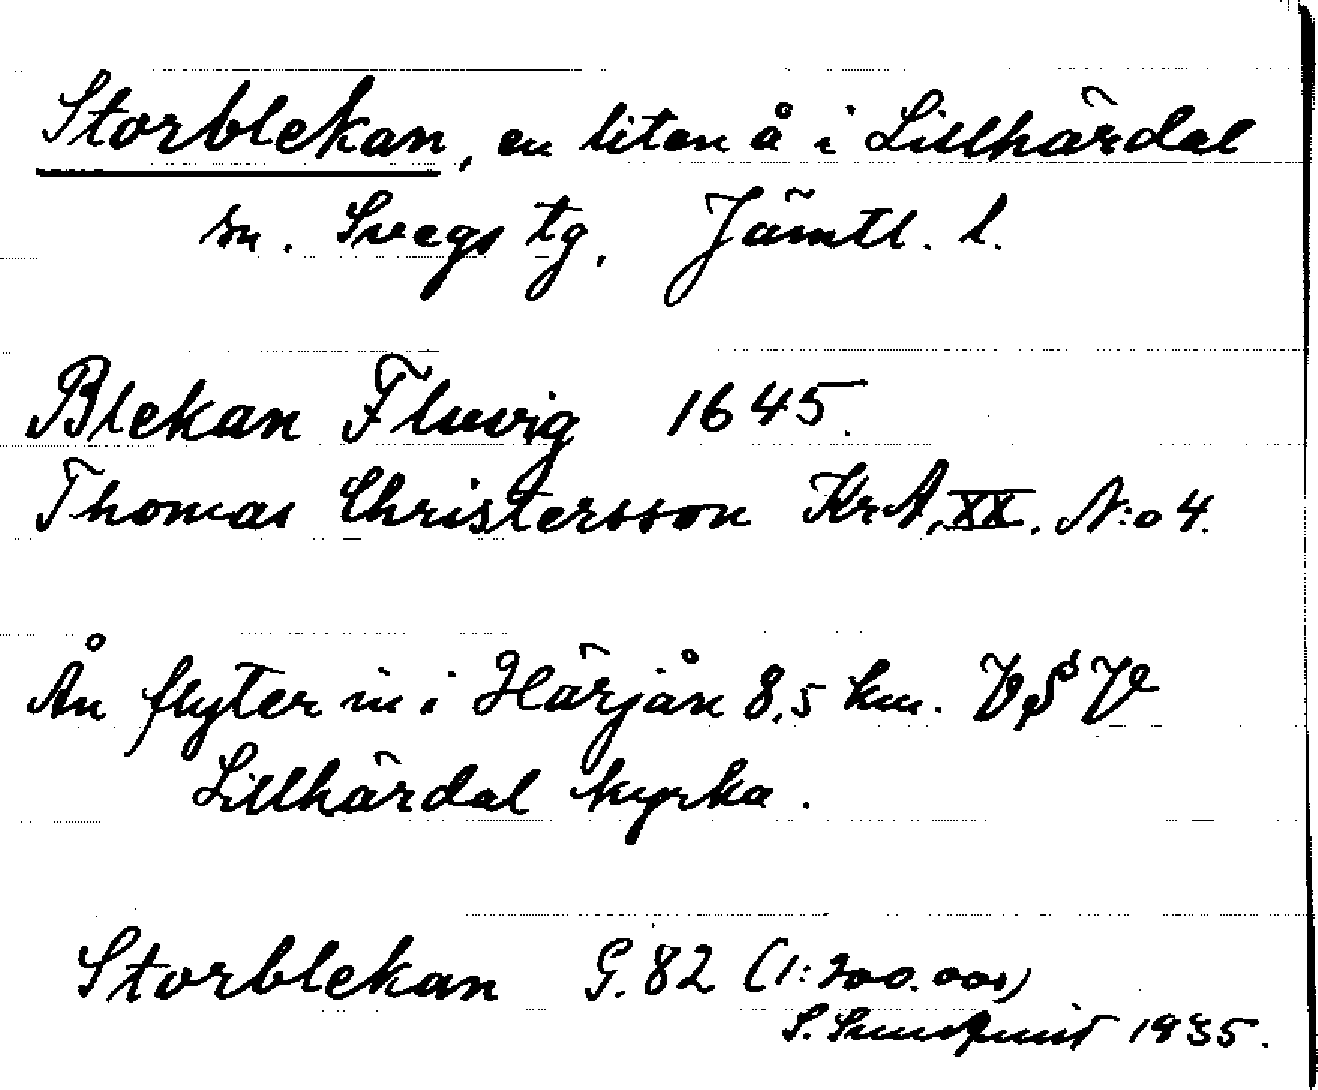 Storblekan, en liten å i Lillhärdal
sn. Svegs tg. Jämtl. l.
Blekan Fluvig 1645.
Thomas Christersson KrA, XX. N:o 4.
Ån flyter in i Härjån 8,5 km. VSV
Lillhärdal kyrka.
Storblekan G. 82 (1:200.000)
S. Sundquist 1935.